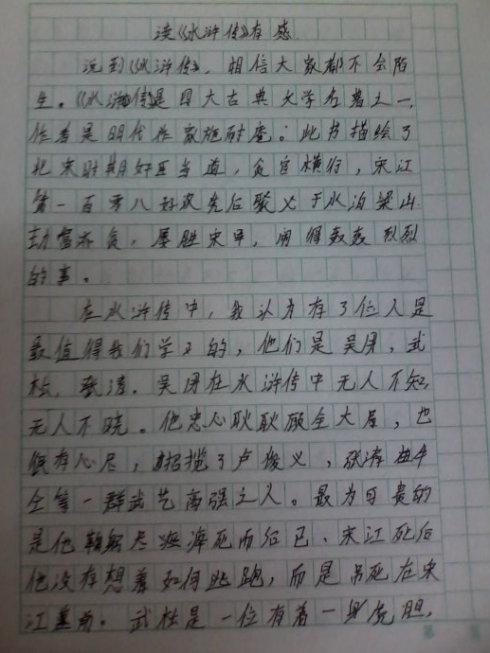 读《水浒传》有感
说到《水浒传》，相信大家都不会陌
生。《水浒传》是四大古典文学名著之一，
作者是明代作家施耐庵。此书描绘了
北宋时期奸臣当道，贪官横行，宋江
等一百零八好汉先后聚义于水泊梁山
劫富济贫，屡胜宋军，闹得轰轰烈烈
的事。
在水浒传中，我认为有3位人是
最值得我们学习的，他们是吴用，武
松，张清。吴用在水浒传中无人不知，
无人不晓。他忠心耿耿顾全大局，也
很有心计，招揽了卢俊义，张清
等一群武艺高强之人。最为可贵的
是他鞠躬尽瘁死而后已、宋江死后
他没有想着如何逃跑，而是吊死在宋
江墓前。武松是一位有着一身虎胆，